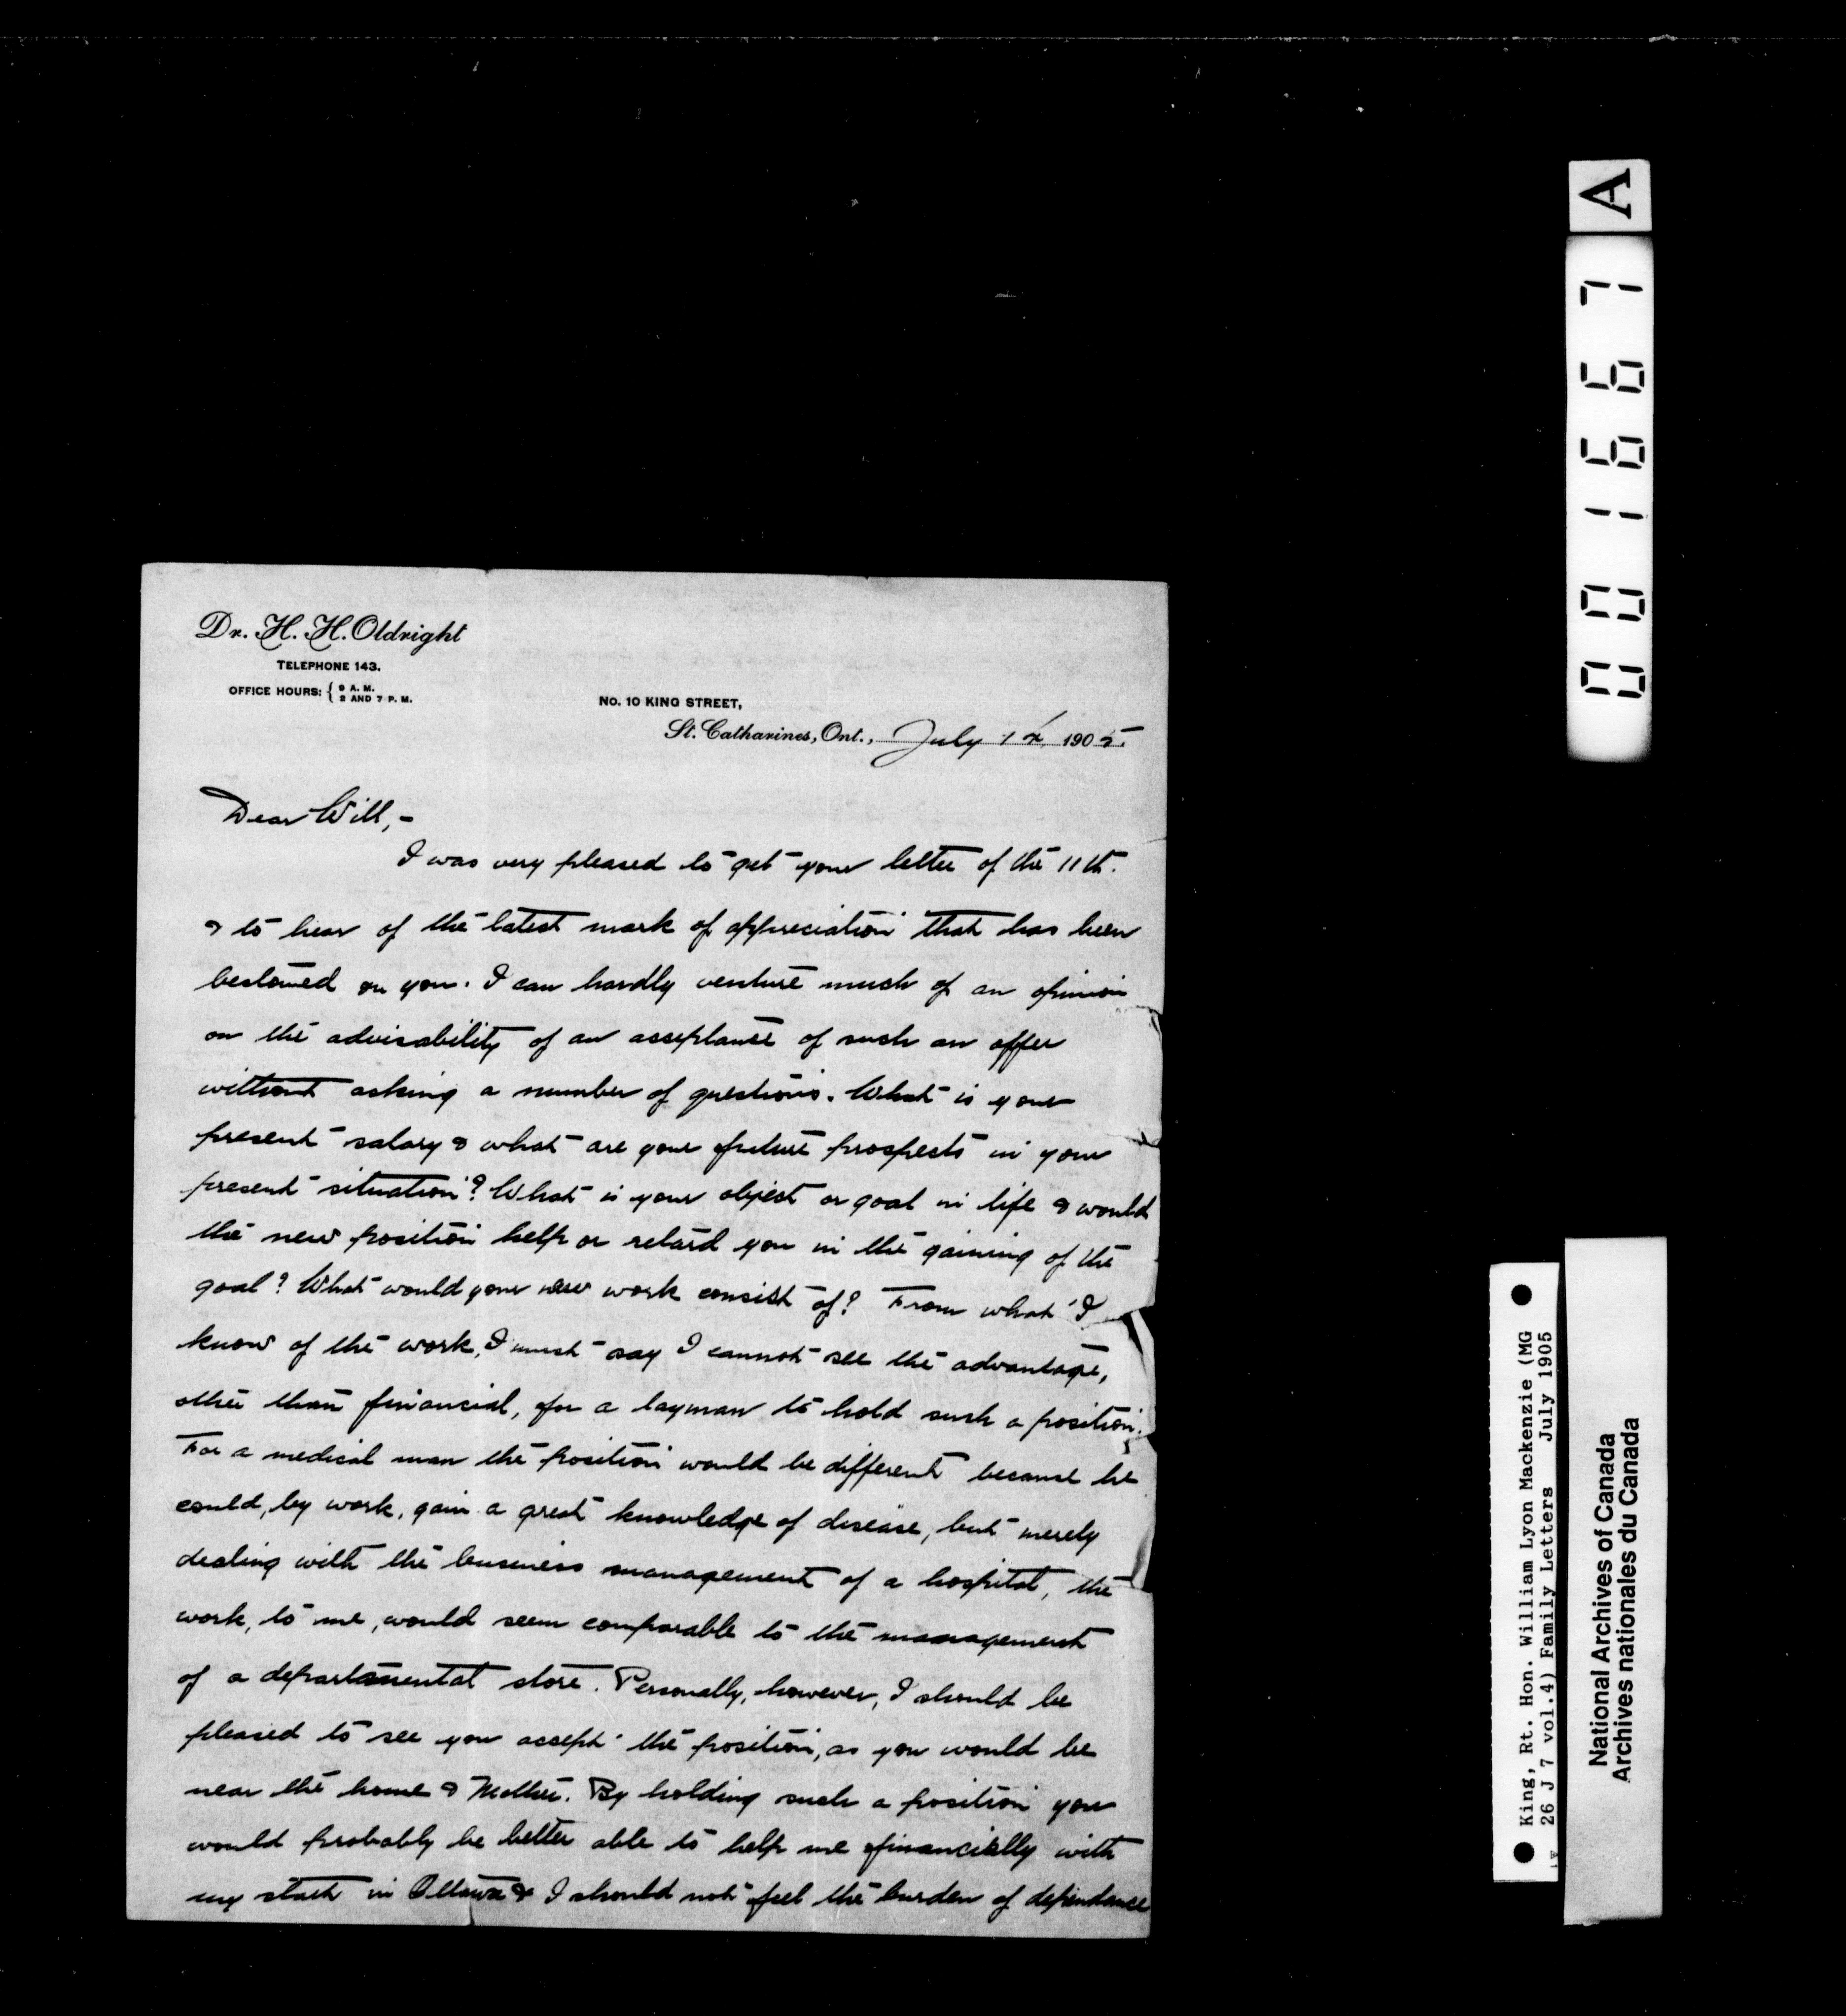 Dr. H. H. Oldright
TELEPHONE 143.
OFFICE HOURS: { 9 A. M.
2 AND 7 P. M.
No. 10 KING STREET,
St. Catharines, Ont., July 1 1905.
Dear Will,-
I was very pleased to get your letter of the 11th.
& to hear of the latest mark of appreciation that has been
bestowed on you. I can hardly venture much of an opinion
on the advisability of an acceptance of such an offer
without asking a number of questions. What is your
present salary & what are your future prospects in your
present situation? What is your object or goal in life & would
the new position help or retard you in the gaining of the
goal? What would your new work consist of? From what I
know of the work, I must say I cannot see the advantage,
other than financial, for a layman to hold such a position.
For a medical man the position would be different because he
could, by work, gain a great knowledge of disease, but merely
dealing with the business management of a hospital, the
work, to me, would seem comparable to the management
of a departmental store. Personally, however, I should be
pleased to see you accept the position, as you would be
near the home & Mother. By holding such a position you
would probably be better able to help me financially with
my start in Ottawa & I should not feel the burden of dependance
A
001667
King, Rt. Hon. William Lyon Mackenzie (MG
26 J 7 vol.4) Family Letters July 1905
National Archives of Canada
Archives nationales du Canada